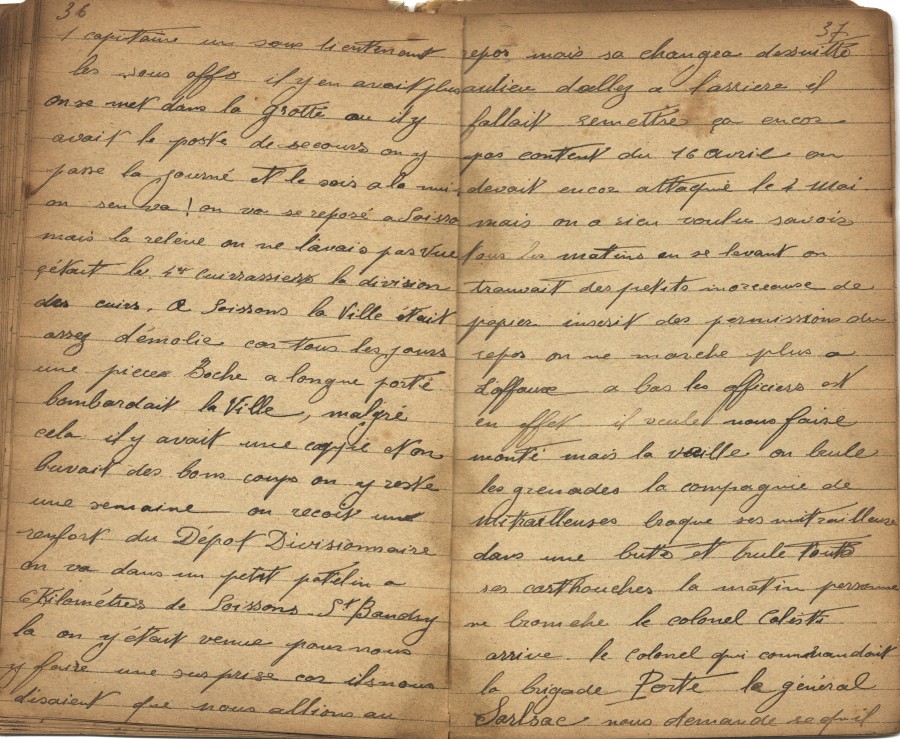 36
1 capitaine un sous lientenant
les sous offs il y en avait plus
on se met dans la grotte ou il y
avait le poste de secours on y
passe la journé et le soir a la nui
on sen va ! on va se reposé a Soisso
mais la relève on ne l'avais pas vue
çétait le 4er Cuirrassiers la division
des cuirs. a Soissons la Ville était
assez démolie car tous les jours
une piece Boche a longue porté
bombardait la Ville, malgré
cela il y avait une et on
buvait des bons coups on y reste
une semaine on recoit une
renfort du Dépot Divisionnaire
on va dans un petit patelin a
6 Kilomètres de Soissons St Bandry
la on y était venue pour nous
y faire une surprise car ils nous
disaient que nous allions au
37
repos mais sa changea dessuitte
aulieu d'allez a l'arriere il
fallait remettre ça encor
pas content du 16 avril on
devait encor attaqué le 4 Mai
mais on a rien voulu savoir
tous les matins en se levant on
trouvait des petits morceaux de
papier inscrit des permissions du
repos on ne marche plus a
d'offaux a bas les officiers et
en effet il veulet nous faire
monté mais la veille on brule
les grenades la compagnie de
mitrailleuses braque ses mitrailleuse
dans une butte et brule toute
ses carthouches la matin personne
ne bronche le colonel
arrive le colonel qui commandait
la brigade Porte le général
nous demande se quil